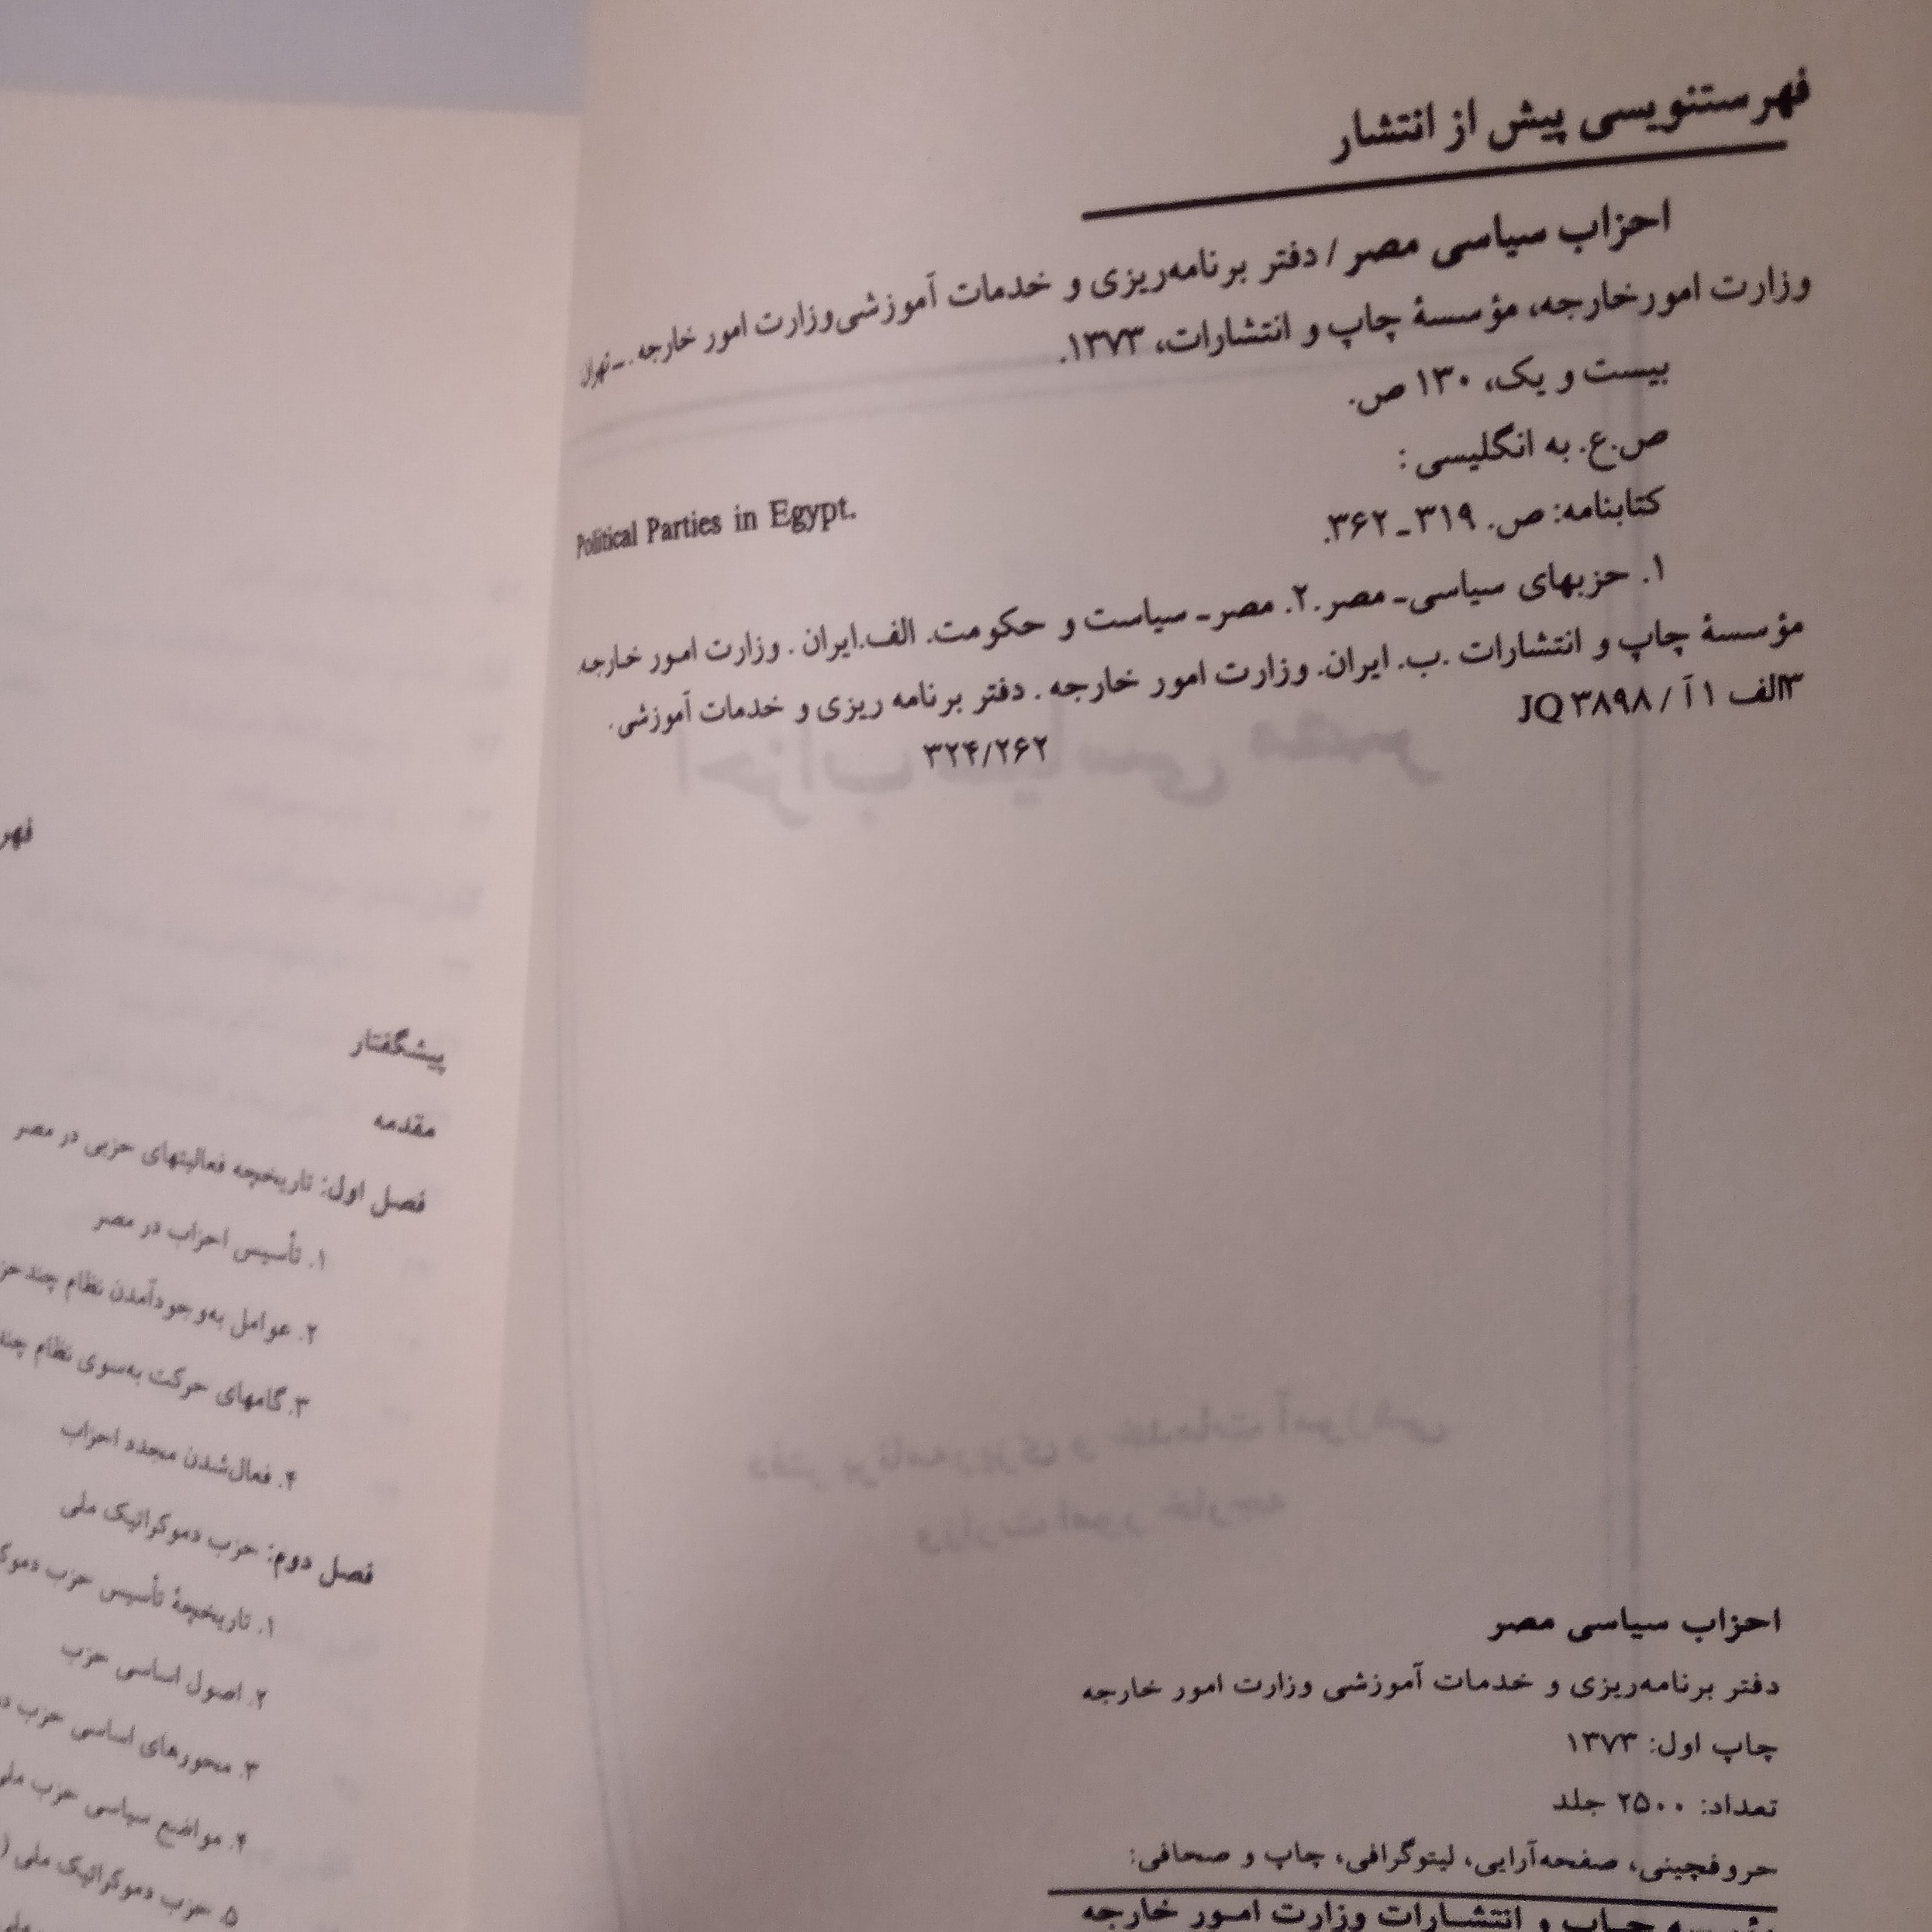 فهرستنویسی پیش از انتشار
احزاب سیاسی مصر / دفتر برنامه‌ریزی و خدمات آموزشی‌وزارت امور خارجه. ـ تهران
وزارت امورخارجه، مؤسسهٔ چاپ و انتشارات، ۱۳۷۳.
بیست و یک، ۱۳۰ ص.
ص.ع. به انگلیسی :
Political Parties in Egypt.
کتابنامه: ص. ۳۱۹ ـ ۳۶۲.
۱. حزبهای سیاسی ـ مصر.۲. مصر ـ سیاست و حکومت. الف.ایران . وزارت امور خارجه
مؤسسهٔ چاپ و انتشارات .ب. ایران. وزارت امور خارجه . دفتر برنامه ریزی و خدمات آموزشی.
۳الف ۱ آ / JQ ۳۸۹۸
۳۲۴/۲۶۲
احزاب سیاسی مصر
دفتر برنامه‌ریزی و خدمات آموزشی وزارت امور خارجه
چاپ اول: ۱۳۷۳
تعداد: ۲۵۰۰ جلد
حروفچینی، صفحه‌آرایی، لیتوگرافی، چاپ و صحافی:
چاپ و انتشارات وزارت امور خارجه
فهر
پیشگفتار
مقدمه
فصل اول: تاریخچه فعالیتهای حزبی در مصر
۱. تأسیس احزاب در مصر
۲. عوامل به‌وجودآمدن نظام چند حز
۳. گامهای حرکت به‌سوی نظام چند
۴. فعال‌شدن مجدد احزاب
فصل دوم: حزب دموکراتیک ملی
۱. تاریخچهٔ تأسیس حزب دموک
۲. اصول اساسی حزب
۳. محورهای اساسی حزب د
۴. مواضع سیاسی حزب ملی
۵. حزب دموکراتیک ملی (